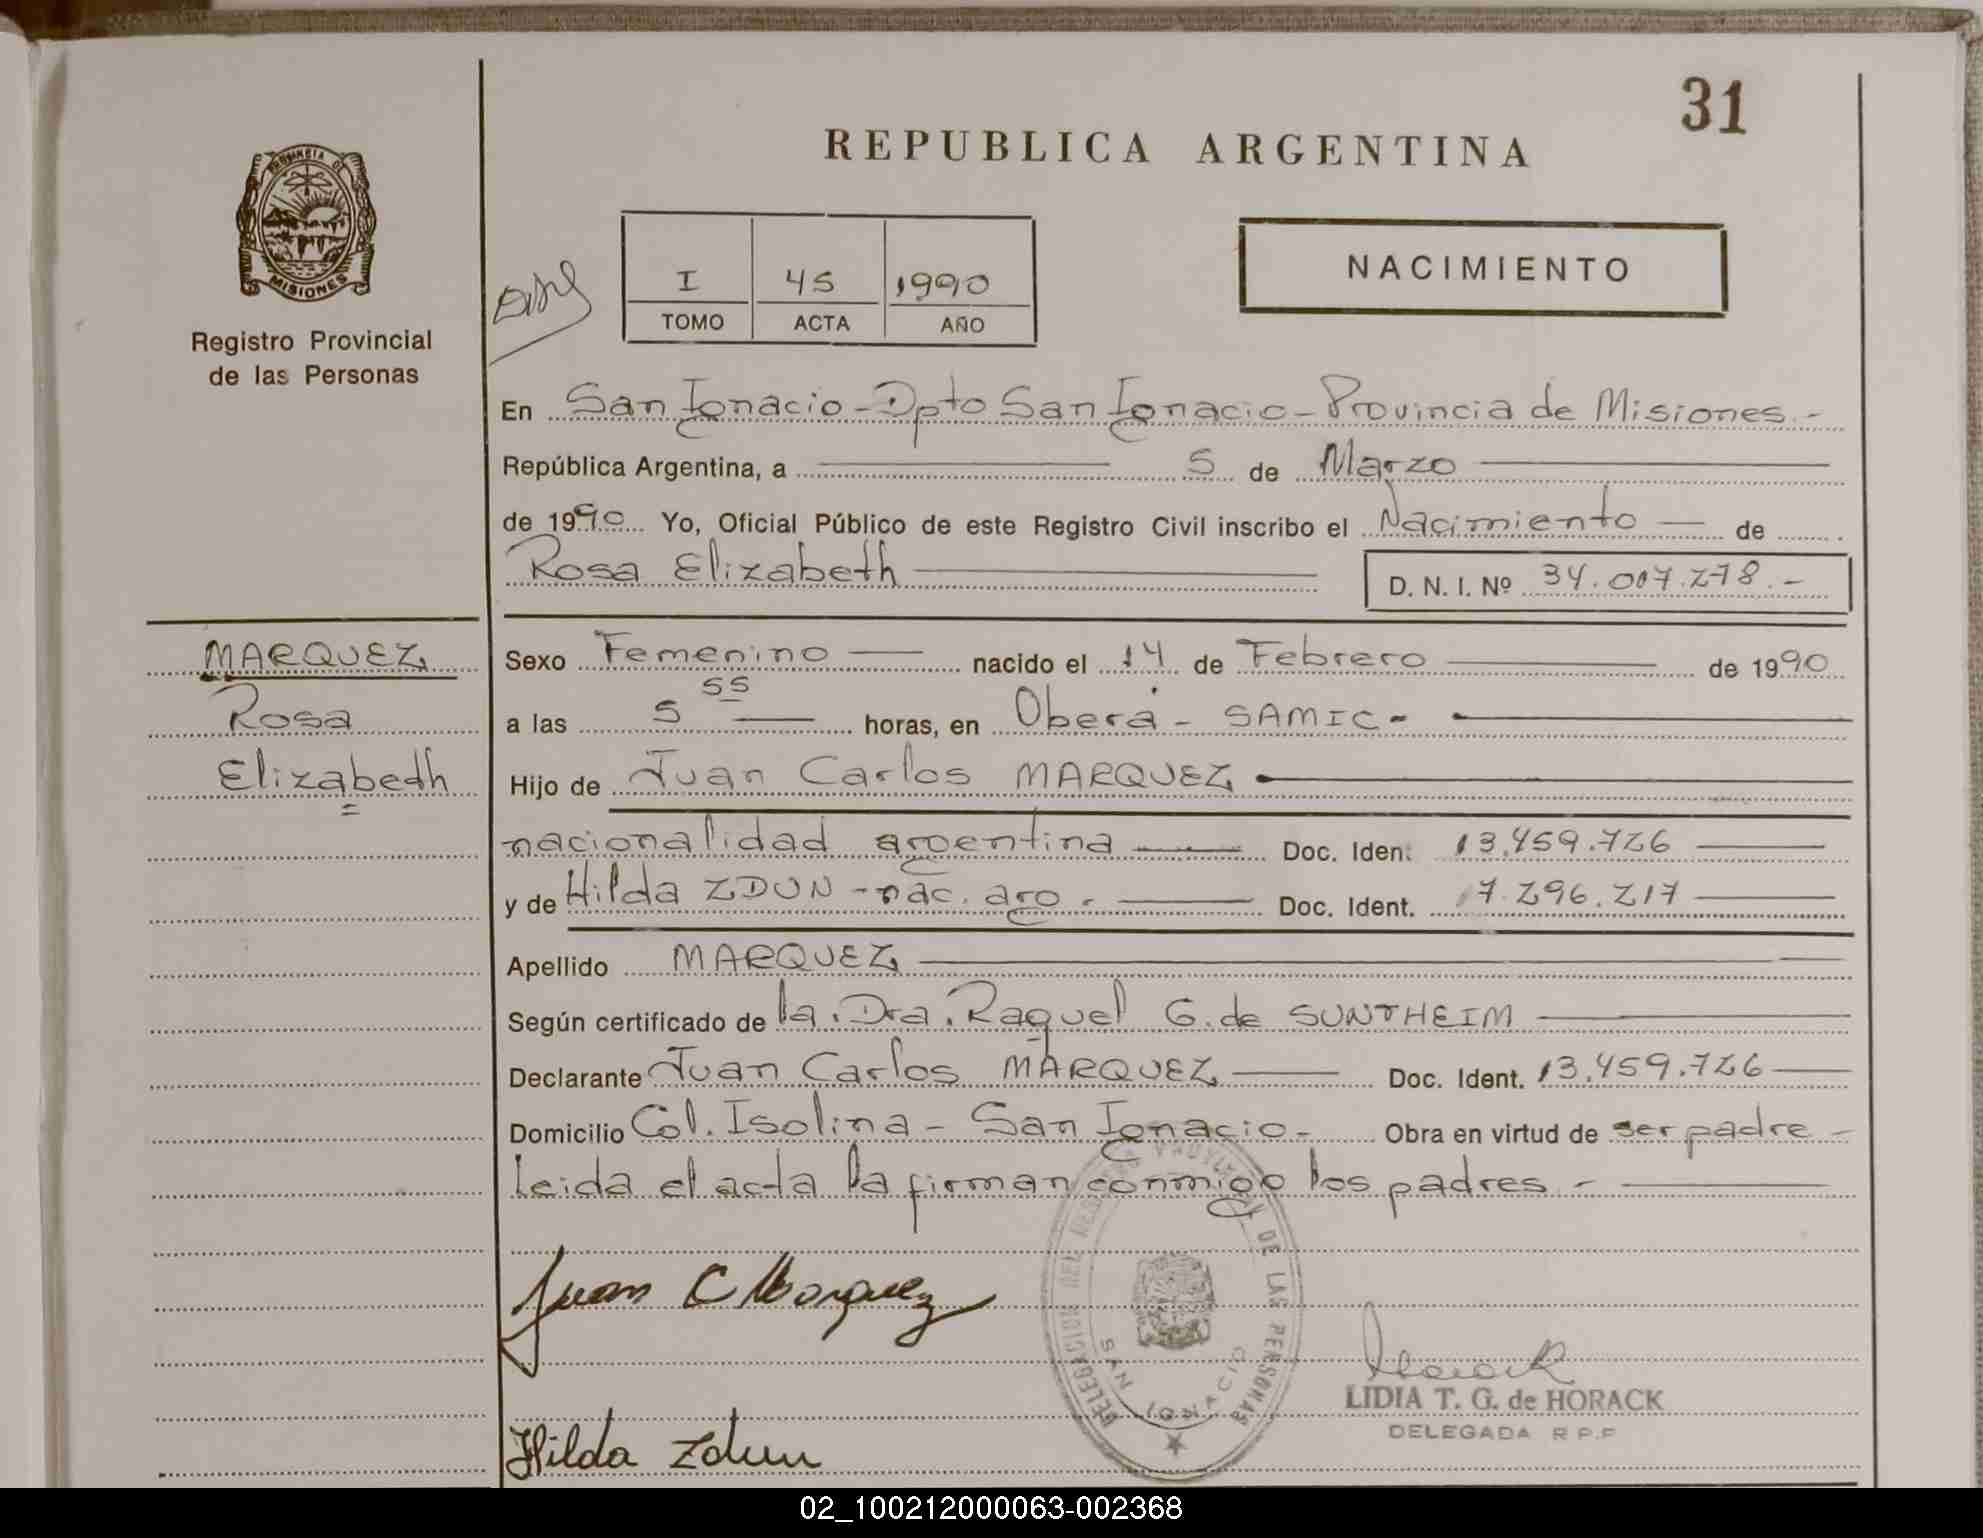 31
REPUBLICA ARGENTINA
PROVINCIA DE
MISIONES
Registro Provincial
de las Personas
I 45 1990
TOMO ACTA AÑO
NACIMIENTO
En San Ignacio - Dpto San Ignacio - Provincia de Misiones.-
República Argentina, a 5 de Marzo
de 1990 Yo, Oficial Público de este Registro Civil inscribo el Nacimiento de
Rosa Elizabeth D. N. I. Nº 34.007.278.-
MARQUEZ
Rosa
Elizabeth
Sexo Femenino nacido el 14 de Febrero de 1990
a las 5 55 horas, en Oberá - SAMIC -
Hijo de Juan Carlos MARQUEZ
nacionalidad argentina Doc. Iden. 13.459.726
y de Hilda ZDUN - nac. arg. Doc. Ident. 17.296.217
Apellido MARQUEZ
Según certificado de la Dra. Raquel G. de SUNTHEIM
Declarante Juan Carlos MARQUEZ Doc. Ident. 13.459.726
Domicilio Col. Isolina - San Ignacio - Obra en virtud de ser padre -
Leida el acta la firman conmigo los padres -
Juan C Marquez
DELEGACION DEL REGISTRO PROVINCIAL DE LAS PERSONAS
SAN IGNACIO
Horack
LIDIA T. G. de HORACK
DELEGADA R P.P
Hilda Zdun
02_100212000063-002368